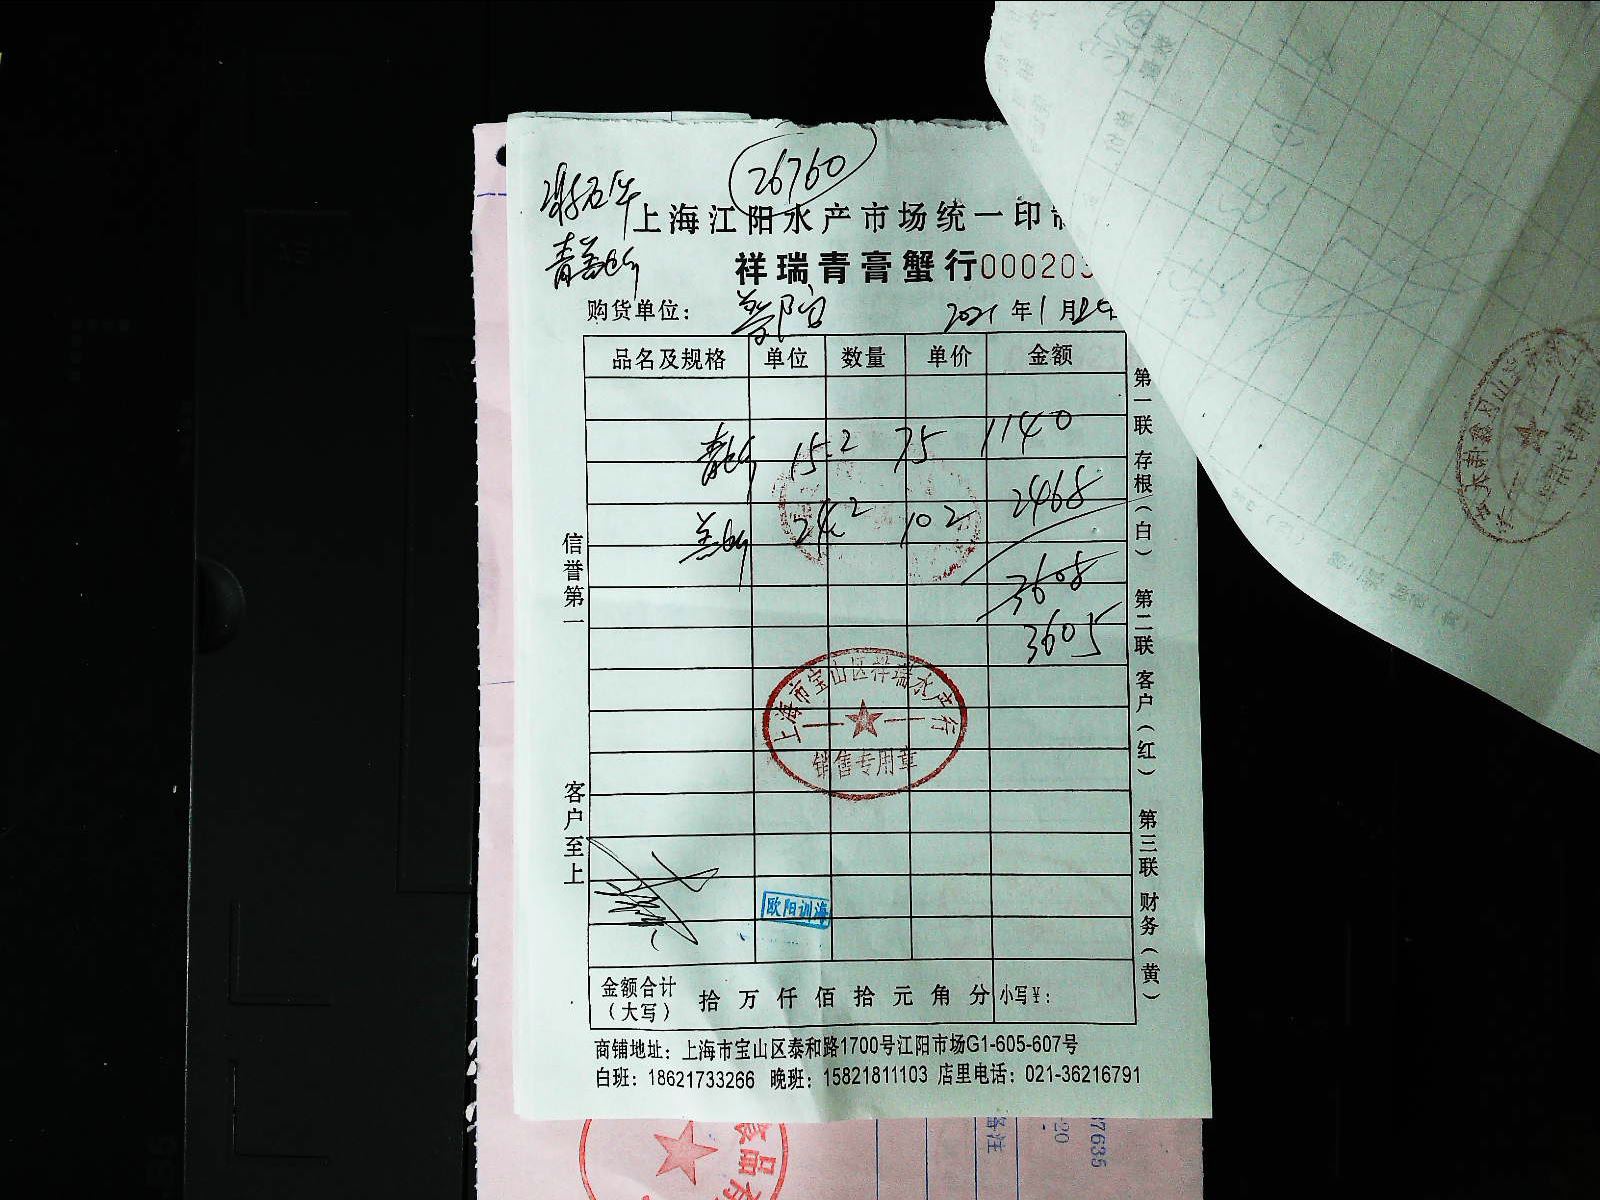 26760
上海江阳水产市场统一印制
祥瑞青膏蟹行 000203
购货单位： 2021年1月29
品名及规格 单位 数量 单价 金额
15.2 75 1140
24.2 102 2468
3608
3605
信誉第一
客户至上
第一联存根（白） 第二联客户（红） 第三联财务（黄）
上海市宝山区祥瑞水产行
销售专用章
欧阳训海
金额合计（大写） 拾 万 仟 佰 拾 元 角 分 小写￥：
商铺地址：上海市宝山区泰和路1700号江阳市场G1-605-607号
白班：18621733266 晚班：15821811103 店里电话：021-36216791
备注
37635